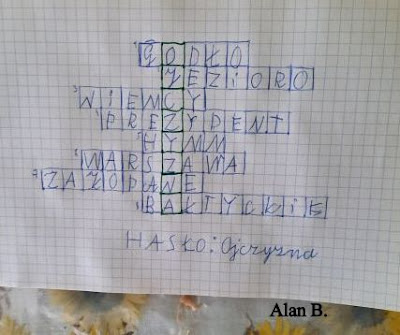 GODŁO
JEZiORO
NIEMCY
PREZYDENT
HYMN
WARSZAWA
ZAKOPANE
BAŁTYCKiE
HASŁO: Ojczyzna
Alan B.